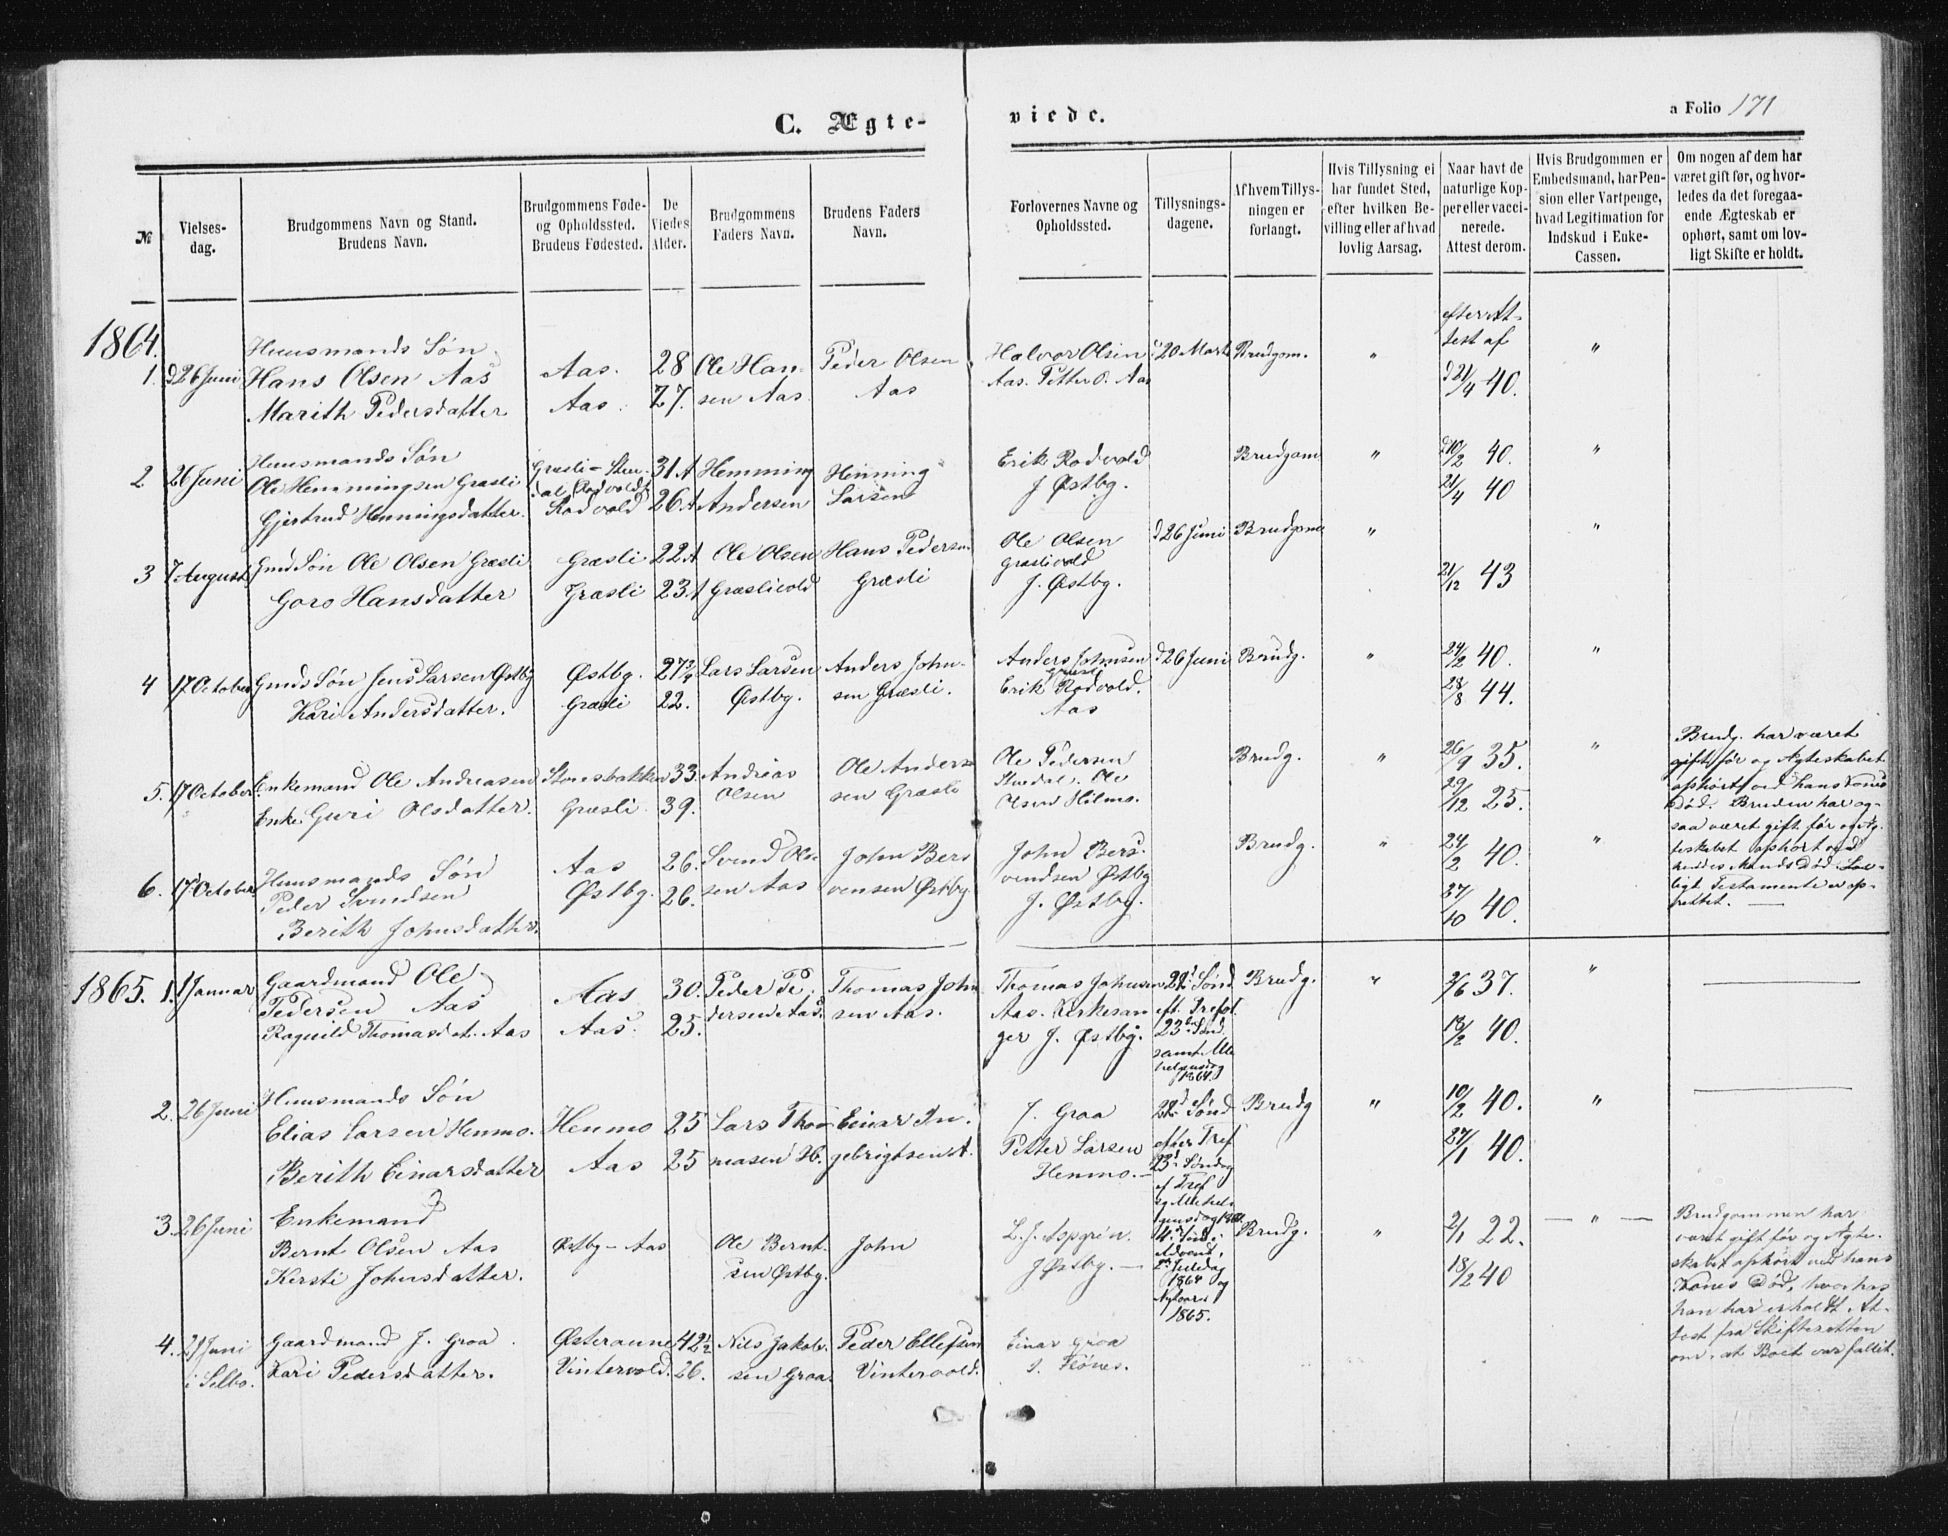 C. Ægte-
viede.
a Folio 171
№
Vielses-
dag.
Brudgommens Navn og Stand.
Brudens Navn.
Brudgommens Føde-
og Opholdssted.
Brudens Fødested.
De
Viedes
Alder.
Brudgommens
Faders Navn.
Brudens Faders
Navn.
Forlovernes Navne og
Opholdssted.
Tillysnings-
dagene.
Af hvem Tillys-
ningen er
forlangt.
Hvis Tillysning ei
har fundet Sted,
efter hvilken Be-
villing eller af hvad
lovlig Aarsag.
Naar havt de
naturlige Kop-
per eller vacci-
nerede.
Attest derom.
Hvis Brudgommen er
Embedsmand, har Pen-
sion eller Vartpenge,
hvad Legitimation for
Indskud i Enke-
Cassen.
Om nogen af dem har
været gift før, og hvor-
ledes da det foregaa-
ende Ægteskab er
ophørt, samt om lov-
ligt Skifte er holdt.
1864.
1. d 26 Juni
Huusmands Søn
Hans Olsen Aas
Marith Pedersdatter
Aas.
Aas.
28
27.
Ole Han-
sen Aas.
Peder Olsen
Aas
Halvor Olsen
Aas. Petter O. Aas
d 20 Marts
Brudgom.
"
efter At-
test af
d 21/4 40.
"
2 26 Juni
Huusmands Søn
Ole Hemmingsen Græsli
Gjertrud Henningsdatter.
Græsli - Stue-
dal, Rodvold
Rodvold
31 A
26 A
Hemming
Andersen
Henning
Larsen
Erik Rodvold
J Østby.
Brudgom
"
d 10/2 40.
21/4 40
"
3 7 August
Gmd Søn Ole Olsen Græsli
Goro Hansdatter
Græsli
Græsli
22 A
23 A
Ole Olsen
Græslivold
Hans Peders
Græsli
Ole Olsen
Græslivold
J. Østby.
d 26 Juni
Brudgom
"
21/12 43
"
4 17 October
Gmds Søn Jens Larsen Østby
Kari Andersdatter.
Østby.
Græsli
27 3/4
22.
Lars Larsen
Østby.
Anders John-
sen Græsli.
Anders Johnsen
Græsli
Erik Rodvold.
Aas
d 26 Juni
Brudg.
"
24/2 40.
28/8 44.
"
5. 17 October
Enkemand Ole Andreasen
Enke Guri Olsdatter.
Stensbakken
Græsli
33.
39.
Andreas
Olsen
Ole Ander
sen Græsli
Ole Pedersen
Stuedal. Ole
Olsen Hilmo.
Brudg.
"
26/9 35.
29/12 25.
"
Brudg. har været
gift før og Ægteskabet
ophørt ved hans Kones
Død. Bruden har og-
saa været gift før og Æg-
teskabet ophørt ved
hendes Mands Død. Lov-
ligt Testamente er op-
rettet.
6. 17 October
Huusmands Søn
Peder Svendsen
Berith Johnsdatter.
Aas
Østby.
26.
26.
Svend Ol
sen Aas
John Bers
vensen Østby
John Bers-
vendsen Østby
J. Østby.
Brudg.
"
24/2 40.
27/10 40.
"
1865. 1. 1 Januar
Gaardmand Ole
Pedersen Aas
Ragnild Thomasdat. Aas
Aas
Aas.
30.
25.
Peder Pe-
dersen Aas.
Thomas John
sen Aas.
Thomas Johnsen
Aas. Kirkesan
ger J. Østby.
22d Sønd
eft. Trefol
23de Sønd.
samt Alle
helgensdag
1864.
Brudg.
"
2/6 37.
18/2 40.
"
2. 26 Juni
Huusmands Søn
Elias Larsen Henmo.
Berith Einarsdatter
Henmo
Aas
25
25
Lars Tho
masen H.
Einar In-
gebrigtsen A.
J. Groa
Petter Larsen
Henmo.
22d Sønd
efter Tref
23d Søndag
ef Tref
og Allehel
gensdag 1864.
Brudg
"
10/2 40.
27/1 40.
"
3. 26 Juni
Enkemand
Bernt Olsen Aas
Kersti Johnsdatter.
Østby - Aas
Ole Bernt-
sen Østby.
John
L. J. Aspgren.
J Østby.
4de Sønd i
Advent,
2den Juledag
1864 og
Nytaarsd
1865.
Brudg.
"
2/1 22.
18/2 40
"
Brudgommen har
været gift før og Ægte-
skabet ophørt ved hans
Kones Død, hvorhos
han har erholdt At-
test fra Skifteretten
om, at Boet var fallit.
4. 29 Juni
i Selbo.
Gaardmand J. Groa
Kari Pedersdatter.
Østeraune
Vintervold.
42 1/2
26.
Nils Jakob-
sen Groa.
Peder Ellefsen
Vintervold.
Einar Groa
I. Flønes.